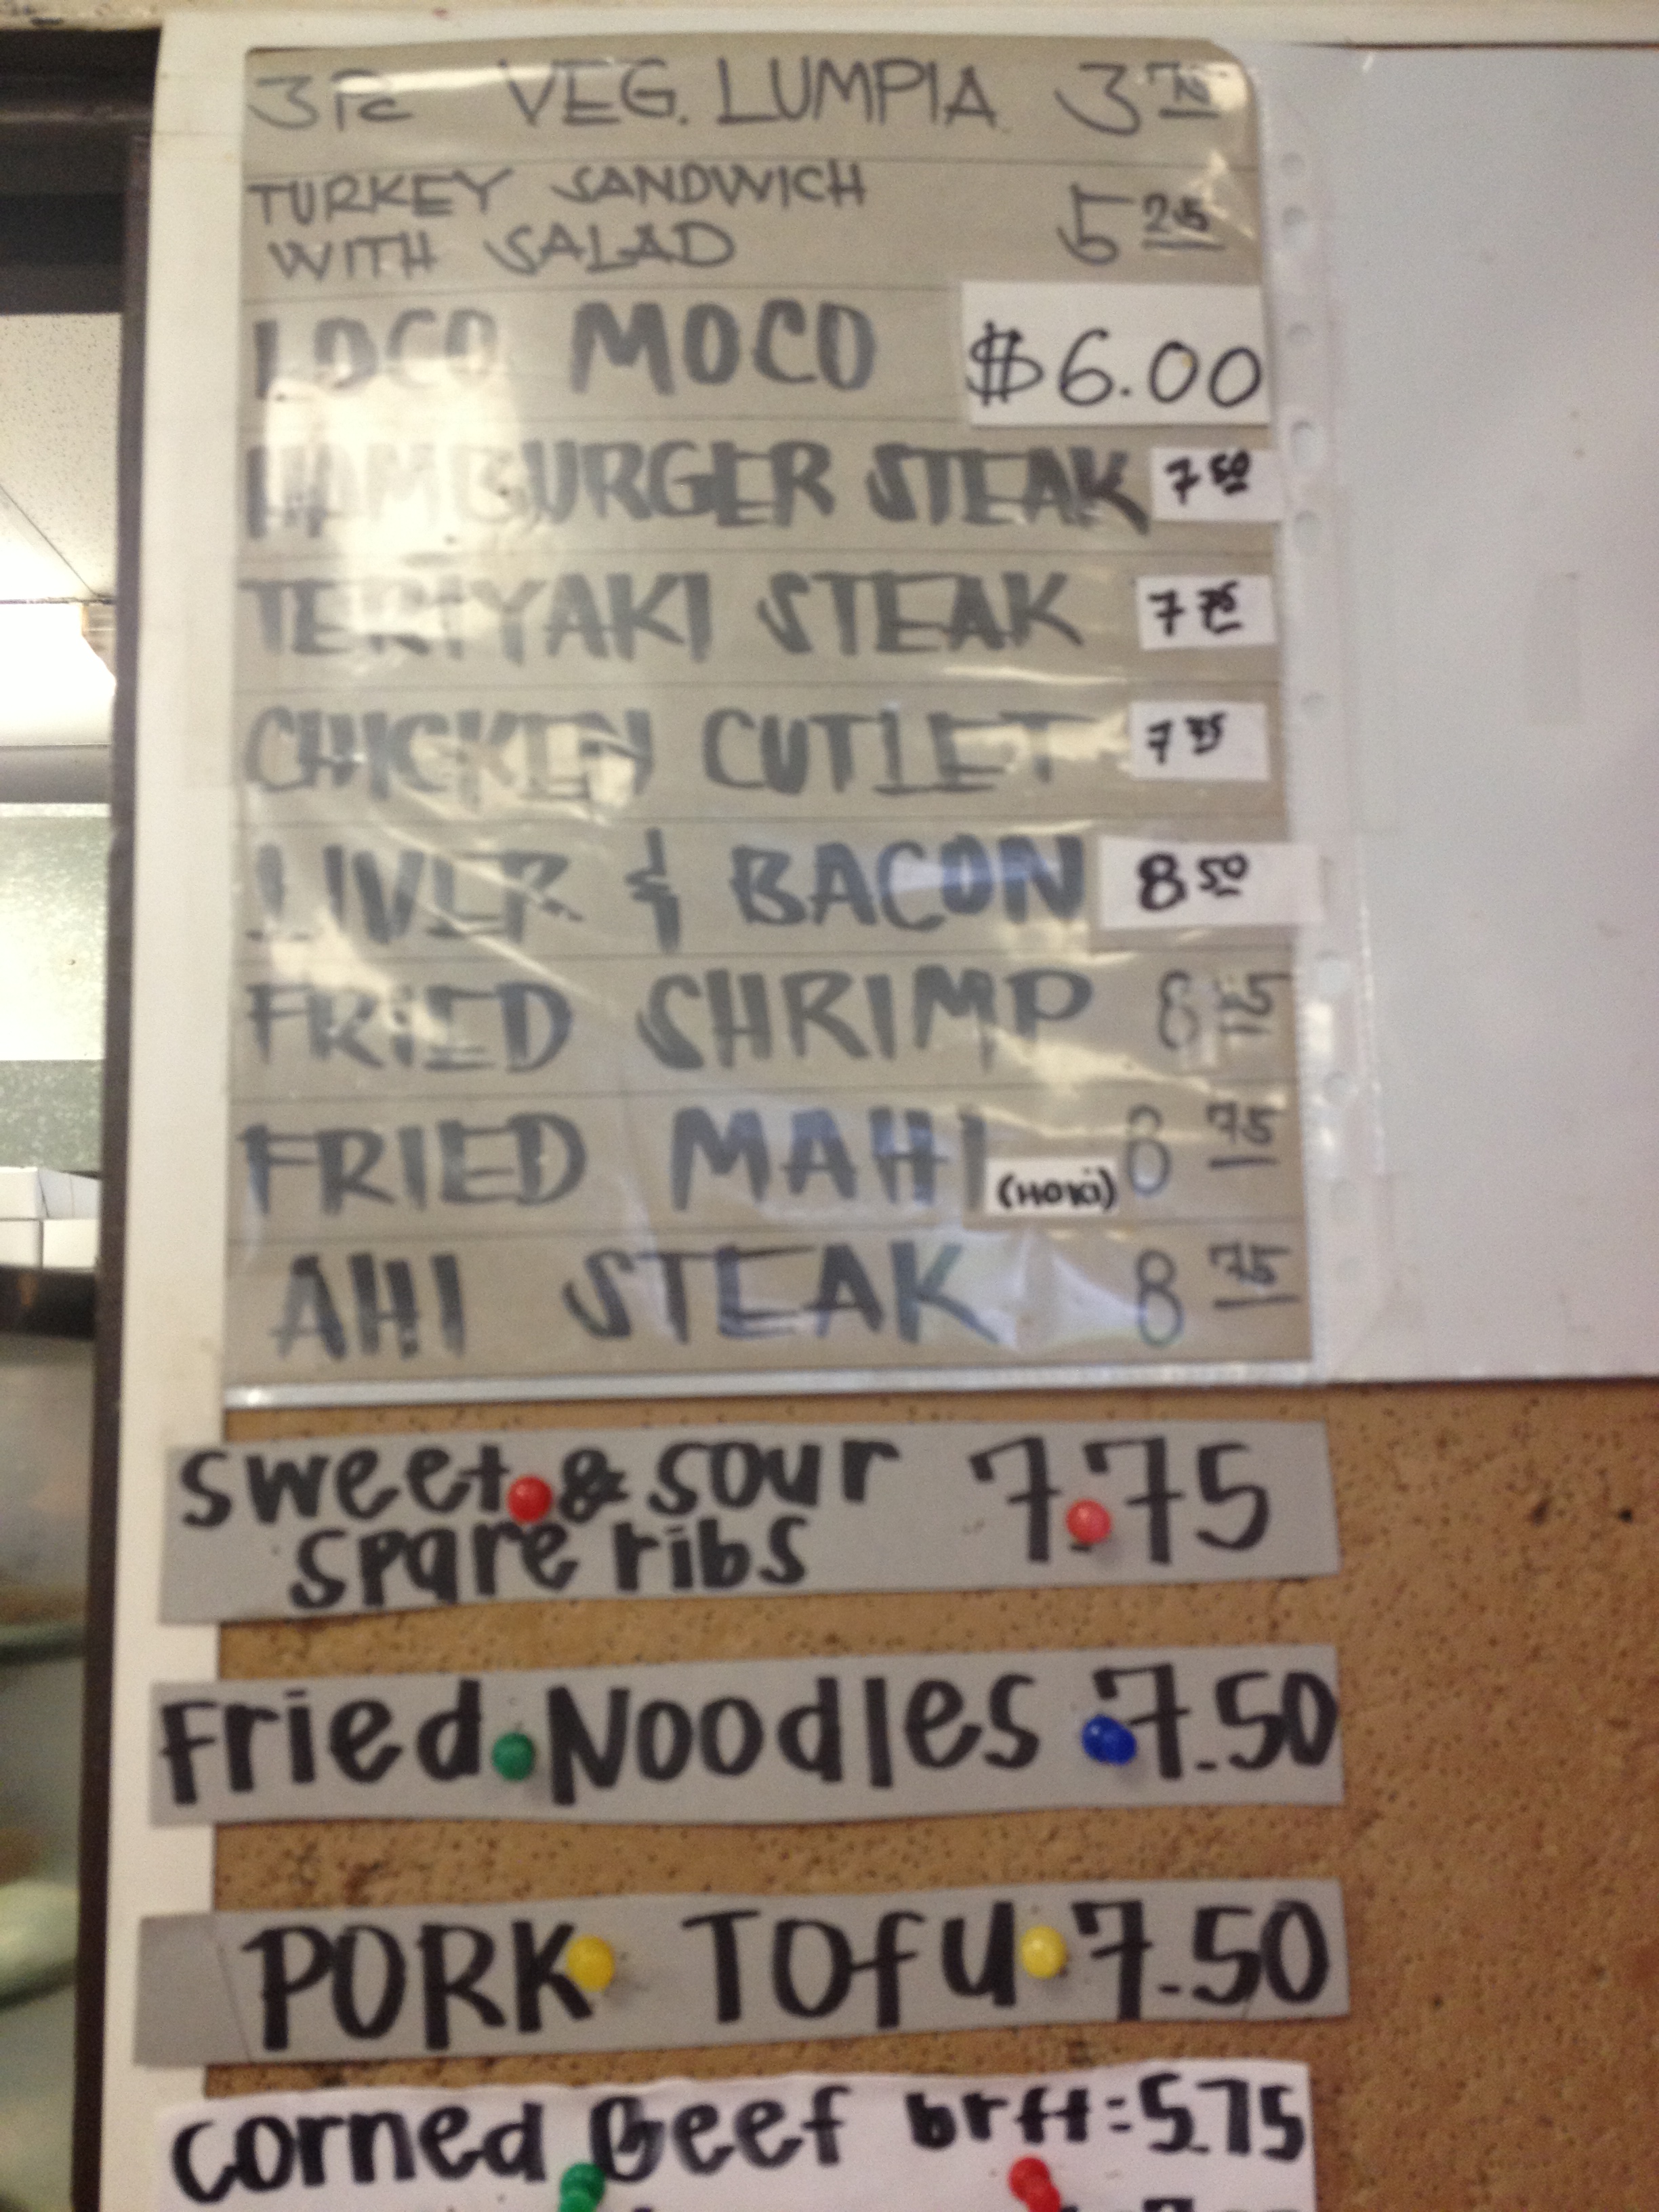 3 Pc VEG. LUMPIA 3 75
TURKEY SANDWICH
WITH SALAD 5 25
LOCO MOCO $6.00
HAMBURGER STEAK 7 50
TERIYAKI STEAK 7 75
CHICKEN CUTLET 7
LIVER & BACON 8 50
FRIED SHRIMP 8
FRIED MAHI (HOKI) 8 75
AHI STEAK 8 75
sweet & sour 7.75
spare ribs
Fried Noodles 7.50
PORK TOfU 7.50
corned Beef brft: 5.75